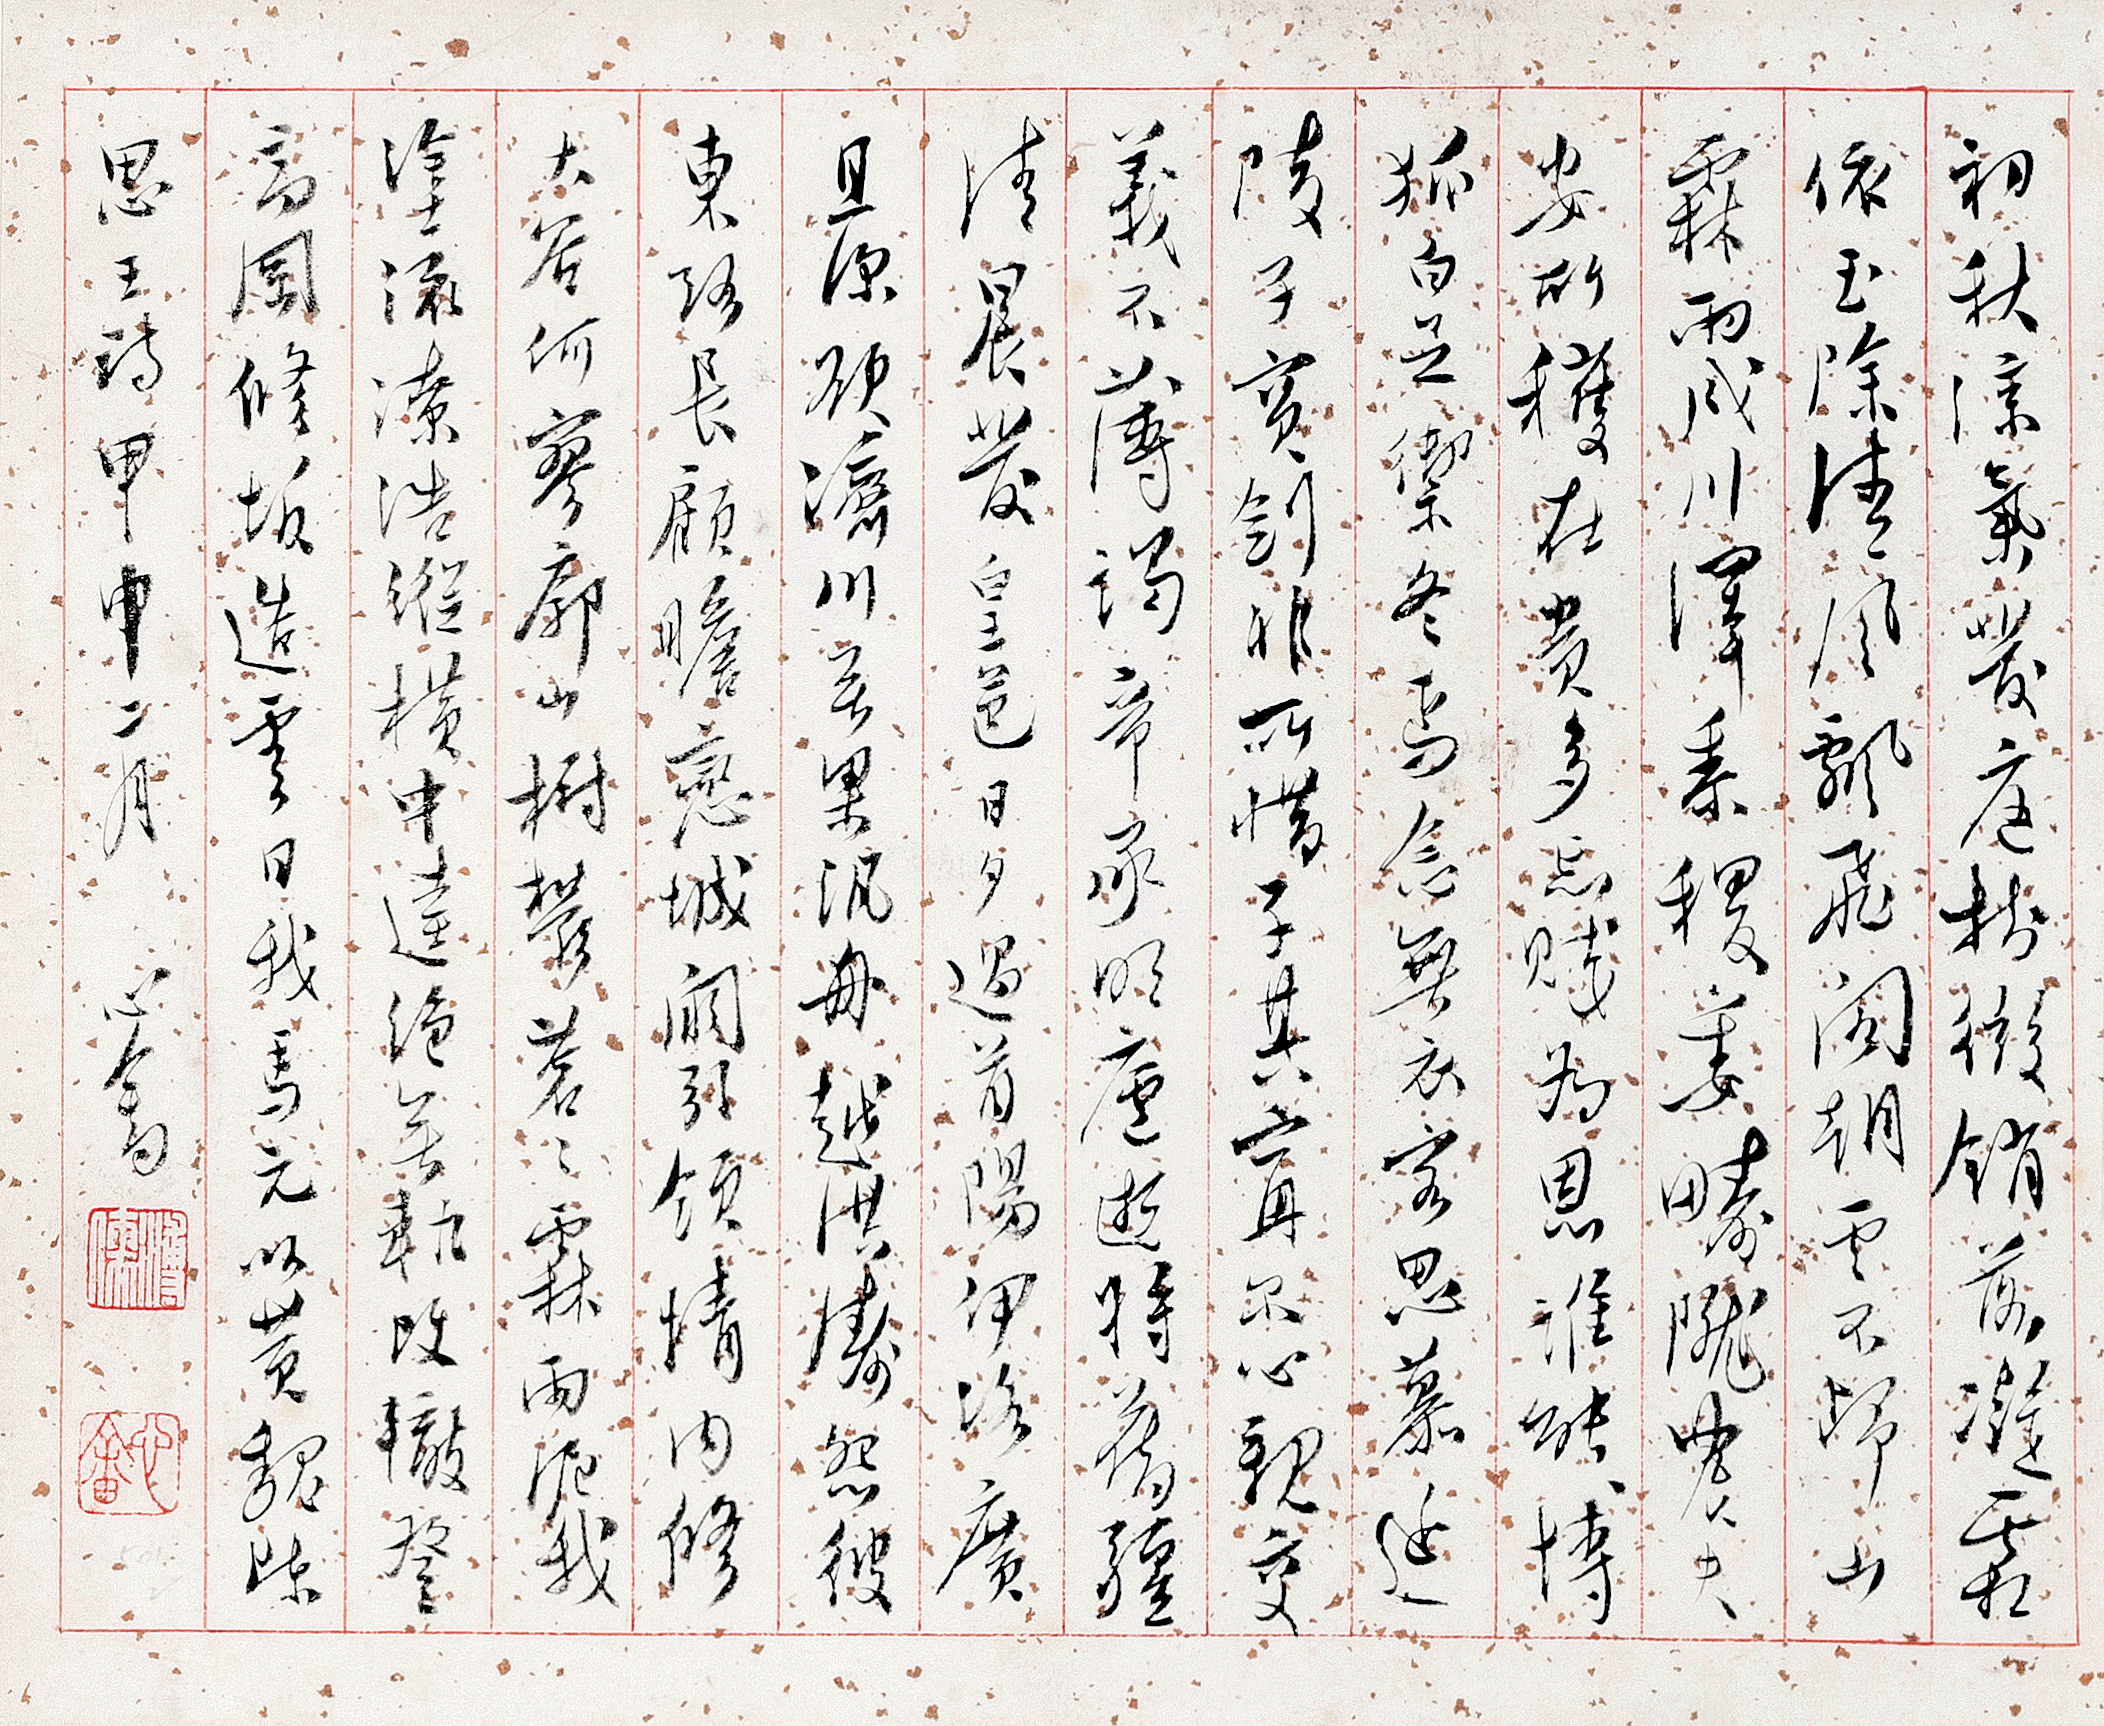 初秋涼氣發庭樹微銷落凝霜
依玉除清風飄飛閣朝雲不歸山
霖雨成川澤黍稷委疇隴農夫
安所穫在貴多忘賤為恩誰能博
狐白足禦冬焉念無衣客思慕延
陵子寶劍非所惜子其寧爾心親交
義不薄謁帝承明廬逝將舊疆
清晨發皇邑日夕過首陽伊洛廣
且深欲濟川無梁汎舟越洪濤怨彼
東路長顧瞻戀城闕引領情內傷
大谷何寥廓山樹鬱蒼々霖雨泥我
塗流潦浩縱橫中逵絕無軌改轍登
高岡修坂造雲日我馬玄以黃魏陳
思王詩甲申二月 心畬
舊王孫
心畬